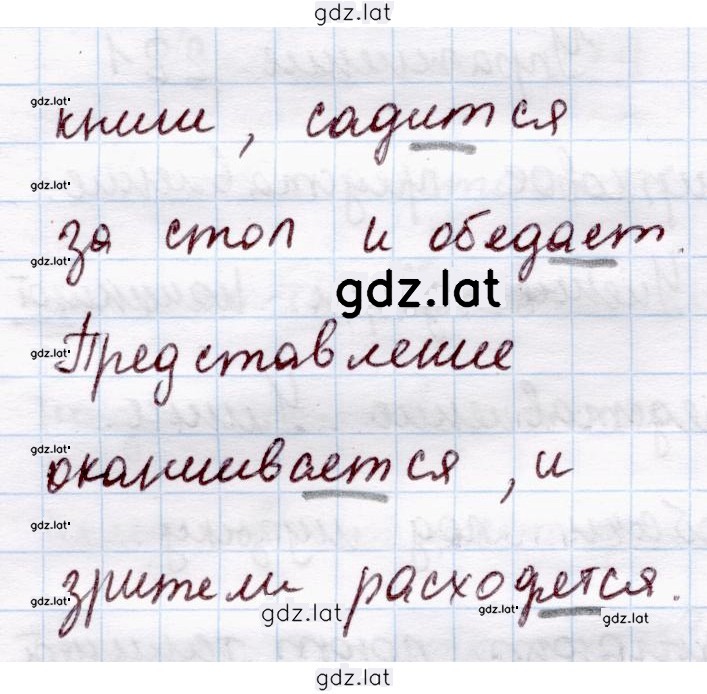 gdz.lat
gdz.lat
книги, садится
gdz.lat
за стол и обедает.
gdz.lat
gdz.lat
gdz.lat
Представление
gdz.lat
оканчивается, и
gdz.lat
зрители расходятся.
gdz.lat
gdz.lat
gdz.lat
gdz.lat
gdz.lat